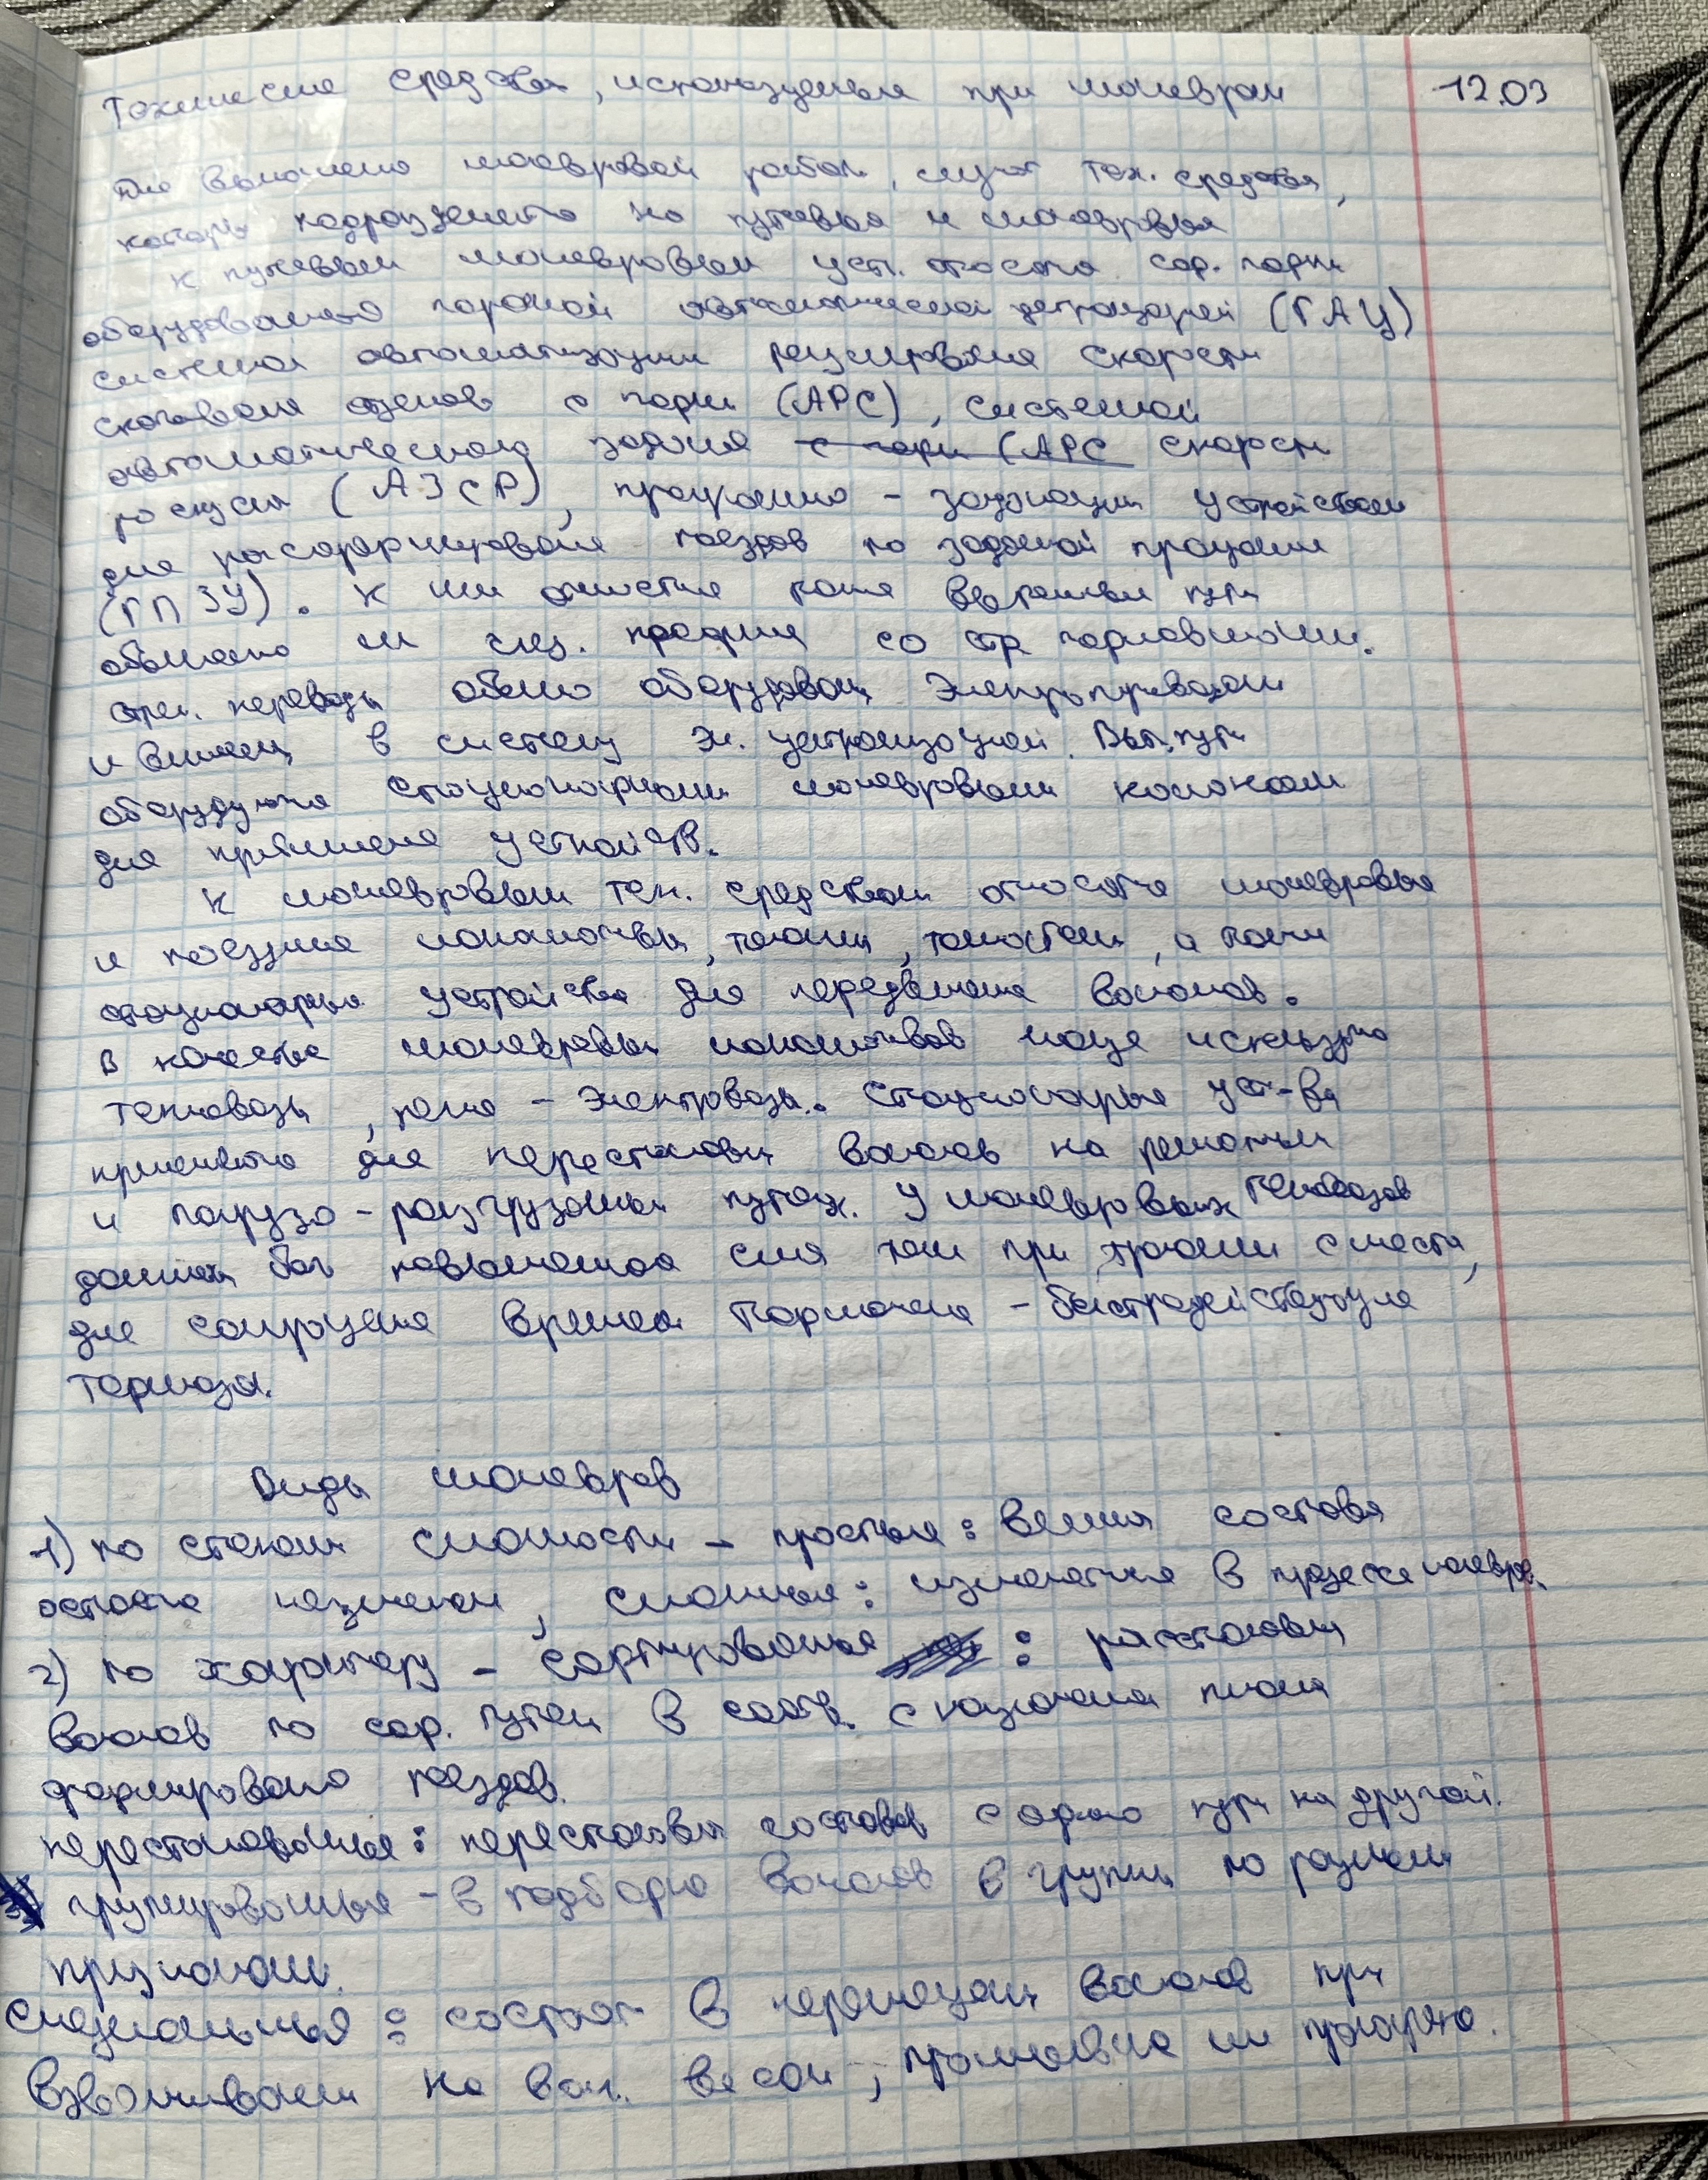 Технические средства, используемые при маневрах 12.03
Для выполнения маневровой работы, служат тех. средства,
которые подразделяются на путевые и маневровые
К путевым маневровым уст. относятся сор. горки
оборудованные горочной автоматической централизацией (ГАЦ)
системой автоматизации регулирования скорости
скатывания отцепов с горки (АРС), системой
автоматического задания с горки (АРС скорости
роспуска (АЗСР), программно - задающим устройством
для расформирования поездов по заданной программе
(ГПЗУ). К ним относятся также вытяжные пути
обычного или спец. профиля со стр горловинами.
стрел. переводы обычно оборудованы электроприводами
и включены в систему эл. централизацией. Выт. пути
оборудуются стационарными маневровыми колонками
для применения устройств.
К маневровым тех. средствам относятся маневровые
и поездные локомотивы, а также
стационарные устройства для передвижения вагонов.
в качестве маневровых локомотивов чаще используются
тепловозы, реже - электровозы. Стационарные уст-ва
применяются для перестановки вагонов на ремонтных
и погрузо - разгрузочных путях. У маневровых тепловозов
должна быть повышенная сила тяги при трогании с места,
для сокращения времени торможения - быстродействующие
тормоза.
Виды маневров
1) по степени сложности - простые: величина состава
остается неизменной, сложные: изменяется в процессе маневров.
2) по характеру - сортировочные : расстановка
вагонов по сор. путям в соотв. с назначения плана
формирования поездов.
перестановочные: перестановка составов с одного пути на другой.
группировочные - в подборке вагонов в группы по разным
признакам.
специальные: состоят в перемещении вагонов при
взвешивании на ваг. весах,